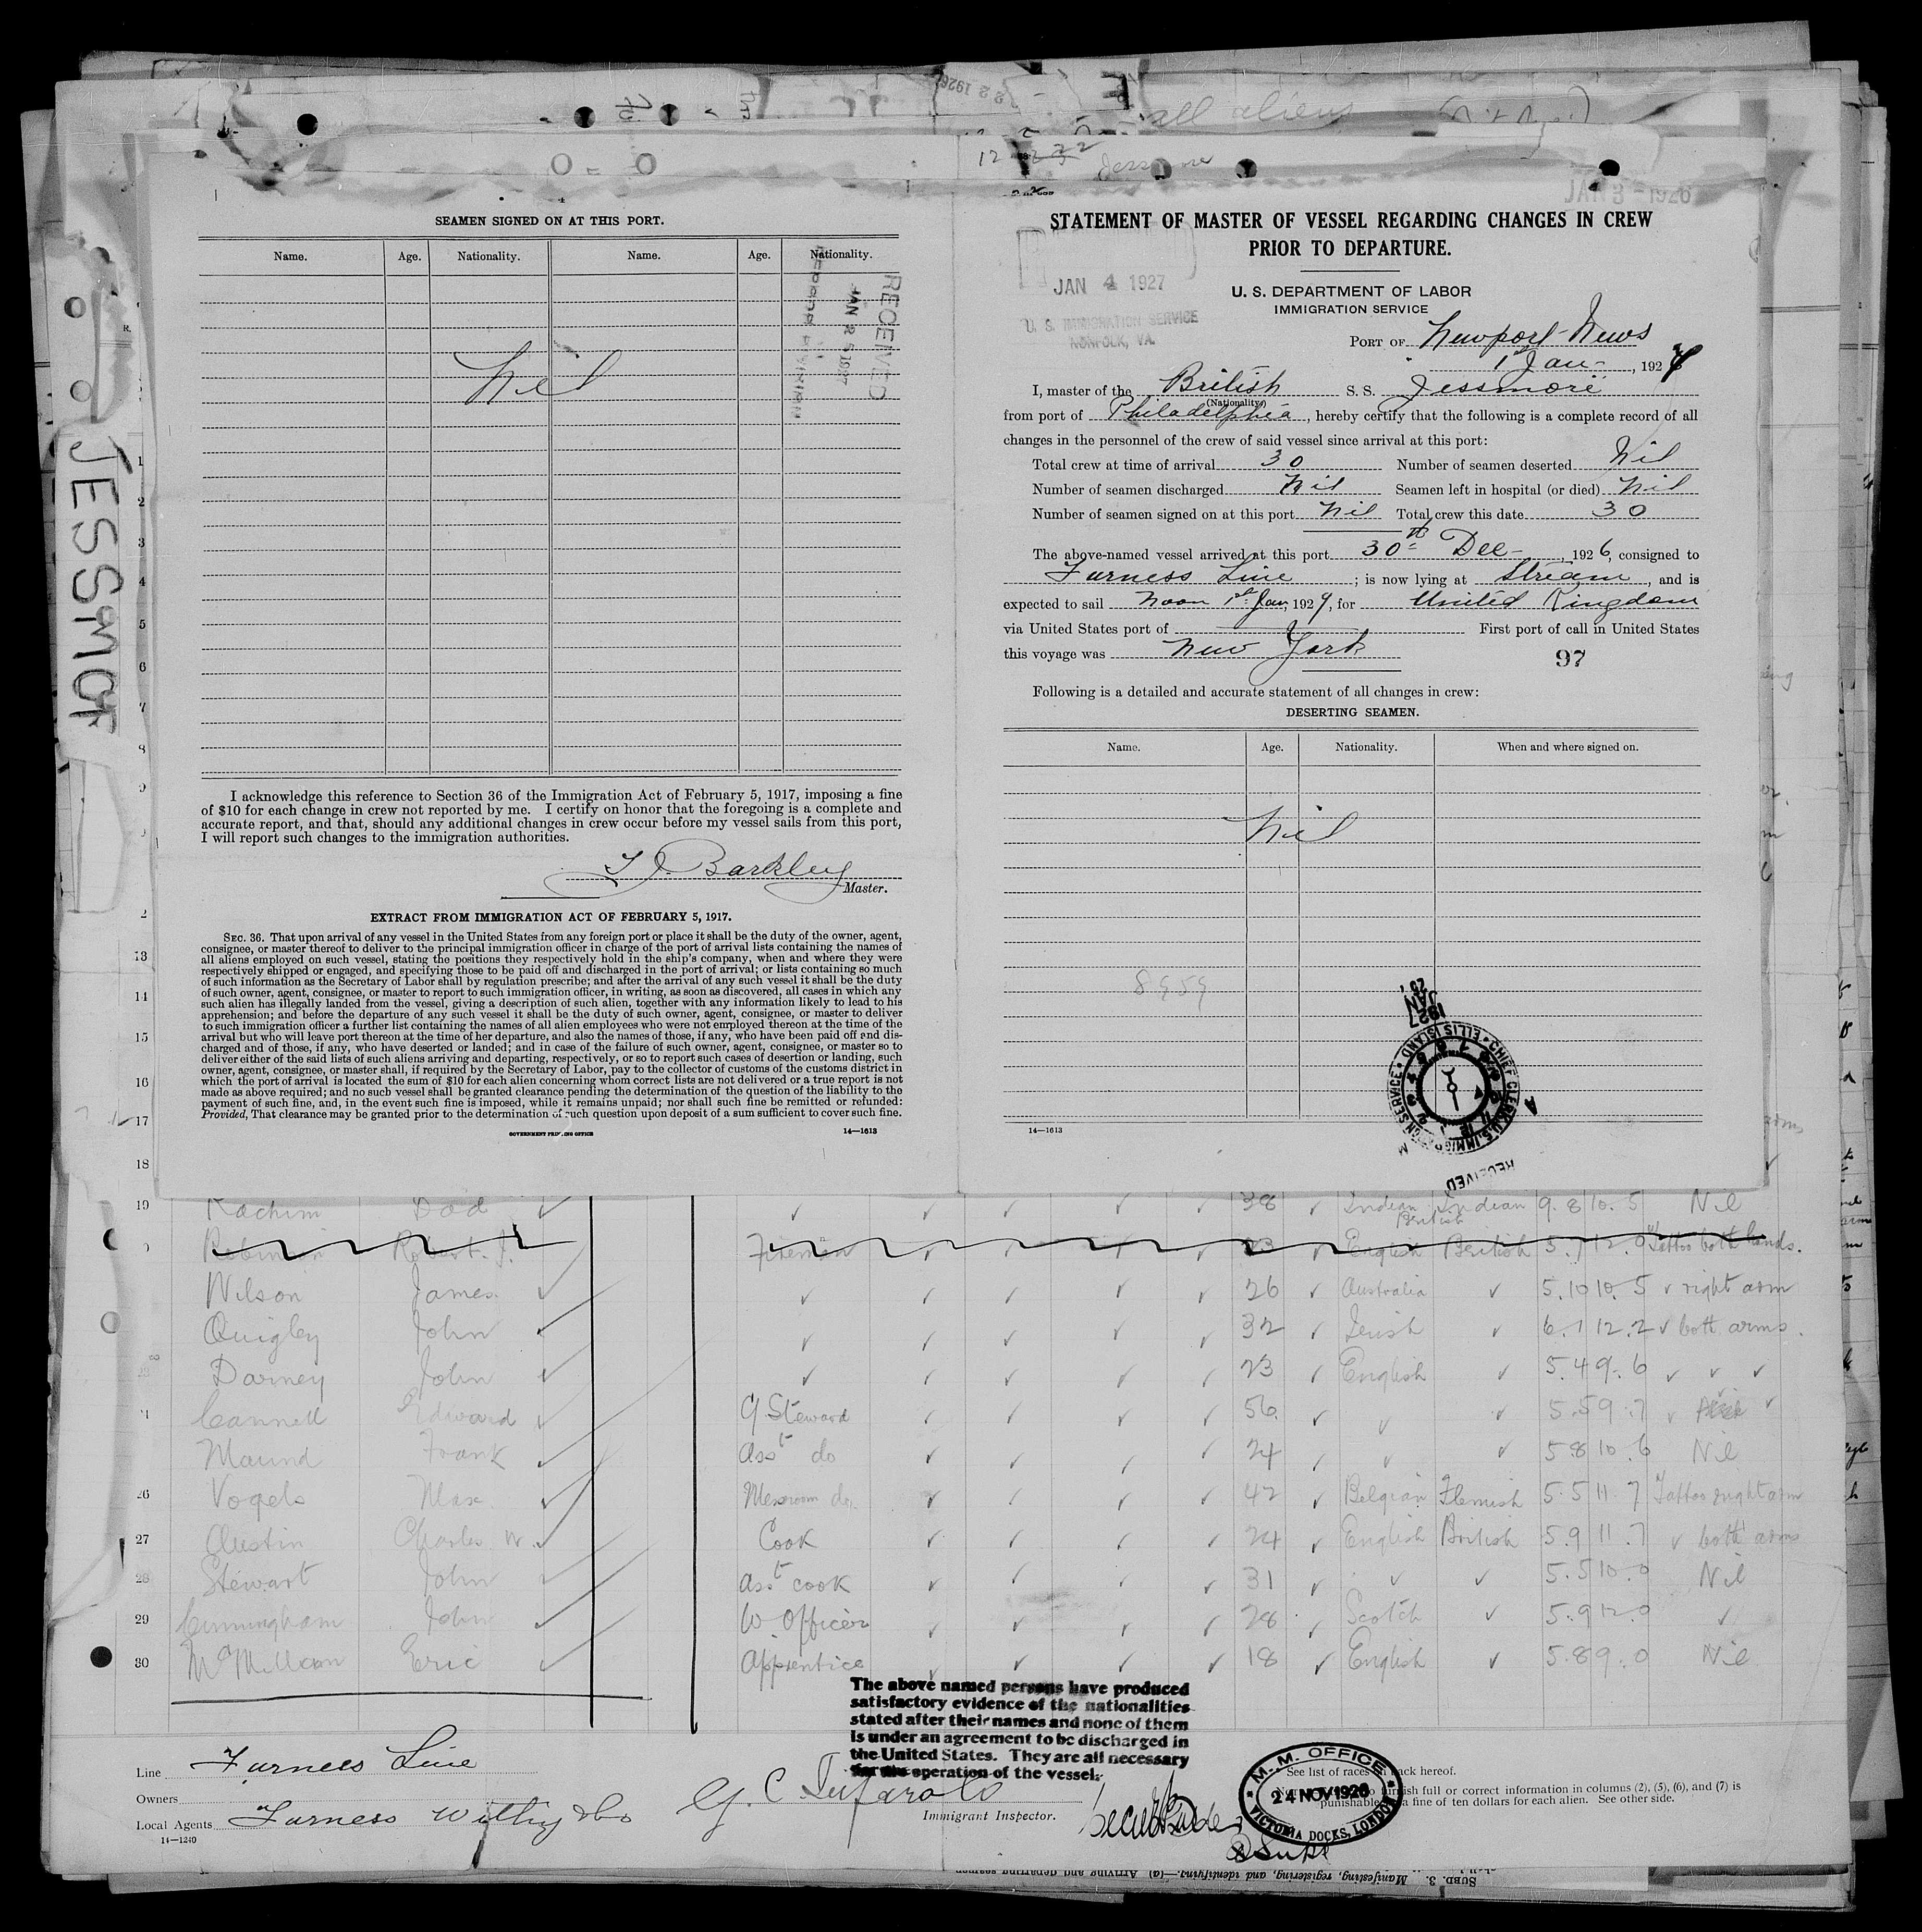 all aliens
Jessmore
JESSMOR
SEAMEN SIGNED ON AT THIS PORT.
Name. Age. Nationality. Name. Age. Nationality.
Nil
RECEIVED
JAN 25 1927
I acknowledge this reference to Section 36 of the Immigration Act of February 5, 1917, imposing a fine
of $10 for each change in crew not reported by me. I certify on honor that the foregoing is a complete and
accurate report, and that, should any additional changes in crew occur before my vessel sails from this port,
I will report such changes to the immigration authorities.
T J Barkley
Master.
EXTRACT FROM IMMIGRATION ACT OF FEBRUARY 5, 1917.
SEC. 36. That upon arrival of any vessel in the United States from any foreign port or place it shall be the duty of the owner, agent,
consignee, or master thereof to deliver to the principal immigration officer in charge of the port of arrival lists containing the names of
all aliens employed on such vessel, stating the positions they respectively hold in the ship's company, when and where they were
respectively shipped or engaged, and specifying those to be paid off and discharged in the port of arrival; or lists containing so much
of such information as the Secretary of Labor shall by regulation prescribe; and after the arrival of any such vessel it shall be the duty
of such owner, agent, consignee, or master to report to such immigration officer, in writing, as soon as discovered, all cases in which any
such alien has illegally landed from the vessel, giving a description of such alien, together with any information likely to lead to his
apprehension; and before the departure of any such vessel it shall be the duty of such owner, agent, consignee, or master to deliver
to such immigration officer a further list containing the names of all alien employees who were not employed thereon at the time of the
arrival but who will leave port thereon at the time of her departure, and also the names of those, if any, who have been paid off and dis-
charged and of those, if any, who have deserted or landed; and in case of the failure of such owner, agent, consignee, or master so to
deliver either of the said lists of such aliens arriving and departing, respectively, or so to report such cases of desertion or landing, such
owner, agent, consignee, or master shall, if required by the Secretary of Labor, pay to the collector of customs of the customs district in
which the port of arrival is located the sum of $10 for each alien concerning whom correct lists are not delivered or a true report is not
made as above required; and no such vessel shall be granted clearance pending the determination of the question of the liability to the
payment of such fine, and, in the event such fine is imposed, while it remains unpaid; nor shall such fine be remitted or refunded:
Provided, That clearance may be granted prior to the determination of such question upon deposit of a sum sufficient to cover such fine.
GOVERNMENT PRINTING OFFICE 14—1613
JAN 3 - 1926
STATEMENT OF MASTER OF VESSEL REGARDING CHANGES IN CREW
PRIOR TO DEPARTURE.
JAN 4 1927
U. S. IMMIGRATION SERVICE
NORFOLK, VA.
U. S. DEPARTMENT OF LABOR
IMMIGRATION SERVICE
PORT OF Newport News
1st Jan, 1927
I, master of the British S. S. Jessmore
(Nationality)
from port of Philadelphia, hereby certify that the following is a complete record of all
changes in the personnel of the crew of said vessel since arrival at this port:
Total crew at time of arrival 30 Number of seamen deserted Nil
Number of seamen discharged Nil Seamen left in hospital (or died) Nil
Number of seamen signed on at this port Nil Total crew this date 30
The above-named vessel arrived at this port 30th Dec, 1926, consigned to
Furness Line; is now lying at Stream, and is
expected to sail Noon 1st Jan, 1927, for United Kingdom
via United States port of First port of call in United States
this voyage was New York
97
Following is a detailed and accurate statement of all changes in crew:
DESERTING SEAMEN.
Name. Age. Nationality. When and where signed on.
Nil
8959
14—1613
JAN 1927
CHIEF CLERK U.S. IMMIGRATION SERVICE ELLIS ISLAND
RECEIVED
19 Rachim Dad ✓ 38 Indian British Indian 9.8 10.5 Nil
Robert. J. Fireman 23 English British 5.7 12.0 Tattoo both hands.
Wilson James 26 Australia ✓ 5.10 10.5 ✓ right arm
Quigley John 32 Irish ✓ 6.1 12.2 ✓ both arms.
Darney John 23 English ✓ 5.4 9.6 ✓ ✓ ✓
Cannell Edward Steward 56 ✓ ✓ 5.5 9.7
Maund Frank Asst do 24 ✓ ✓ 5.8 10.6 Nil
26 Vogels Max Messroom do. 42 Belgian Flemish 5.5 11.7 Tattoo right arm
27 Austin Charles W. Cook 24 English British 5.9 11.7 ✓ both arms
28 Stewart John Asst cook 31 ✓ ✓ 5.5 10.0 Nil
29 Cunningham John W. Officer 28 Scotch ✓ 5.9 12.0 ✓
30 McMillan Eric Apprentice 18 English ✓ 5.8 9.0 Nil
The above named persons have produced
satisfactory evidence of the nationalities
stated after their names and none of them
is under an agreement to be discharged in
the United States. They are all necessary
for the operation of the vessel.
Line Furness Line
Owners
Local Agents Furness Withy & Co
14—1240
Immigrant Inspector.
M. M. OFFICE
24 NOV 1926
VICTORIA DOCKS, LONDON
See list of races on back hereof.
furnish full or correct information in columns (2), (5), (6), and (7) is
punishable a fine of ten dollars for each alien. See other side.
SUBD. 3. Manifesting, registering, and identifying.—(a) Arriving and departing seamen